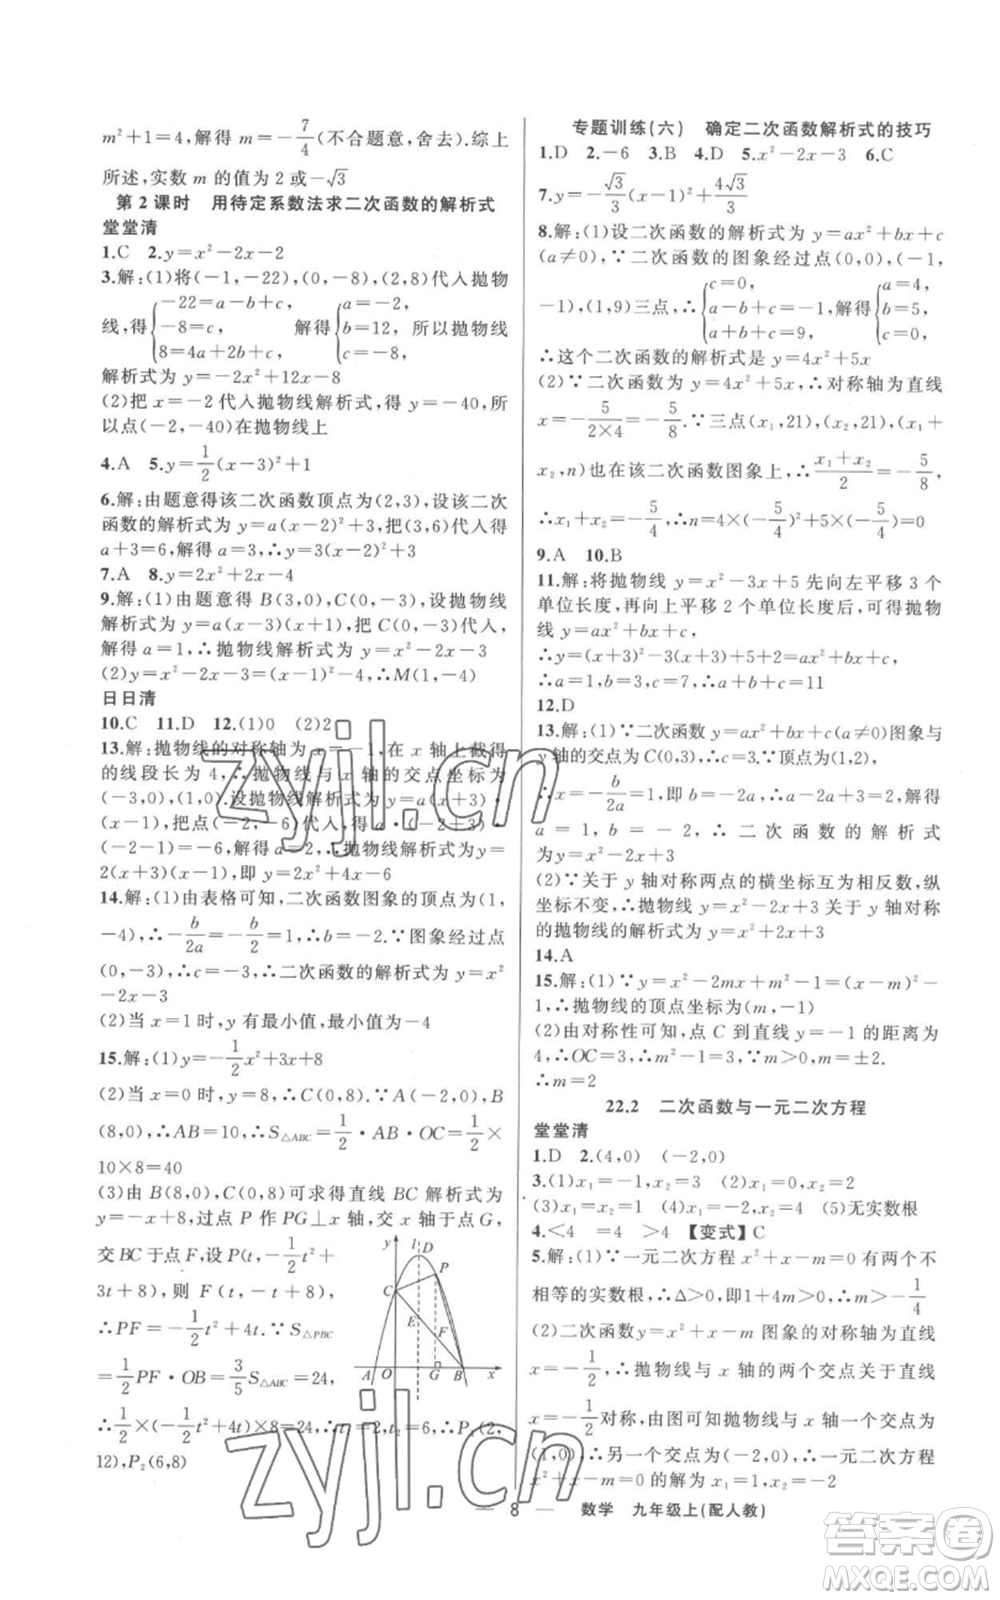 m²+1=4,解得 m=-7/4(不合题意,舍去).综上
所述,实数 m 的值为 2 或-√3
第 2 课时 用待定系数法求二次函数的解析式
堂堂清
1.C 2.y=x²-2x-2
3.解:(1)将(-1,-22),(0,-8),(2,8)代入抛物
线,得{-22=a-b+c, -8=c, 8=4a+2b+c 解得{a=-2, b=12, c=-8 所以抛物线
解析式为 y=-2x²+12x-8
(2)把 x=-2 代入抛物线解析式,得 y=-40,所
以点(-2,-40)在抛物线上
4.A 5.y=1/2(x-3)²+1
6.解:由题意得该二次函数顶点为(2,3),设该二次
函数的解析式为 y=a(x-2)²+3,把(3,6)代入得
a+3=6,解得 a=3,∴y=3(x-2)²+3
7.A 8.y=2x²+2x-4
9.解:(1)由题意得 B(3,0),C(0,-3),设抛物线
解析式为 y=a(x-3)(x+1),把 C(0,-3)代入,
解得 a=1,∴抛物线解析式为 y=x²-2x-3
(2)y=x²-2x-3=(x-1)²-4,∴M(1,-4)
日日清
10.C 11.D 12.(1)0 (2)2
13.解:抛物线的对称轴为 x=-1,在 x 轴上截得
的线段长为 4,∴抛物线与 x 轴的交点坐标为
(-3,0),(1,0),设抛物线解析式为 y=a(x+3)·
(x-1),把点(-2,-6)代入,得 a(-2+3)·
(-2-1)=-6,解得 a=2,∴抛物线解析式为 y=
2(x+3)(x-1),即 y=2x²+4x-6
14.解:(1)由表格可知,二次函数图象的顶点为(1,
-4),∴-b/2a=-b/2=1,∴b=-2.∵图象经过点
(0,-3),∴c=-3,∴二次函数的解析式为 y=x²
-2x-3
(2)当 x=1 时,y 有最小值,最小值为-4
15.解:(1)y=-1/2x²+3x+8
(2)当 x=0 时,y=8,∴C(0,8).∵A(-2,0),B
(8,0),∴AB=10,∴S△ABC=1/2·AB·OC=1/2×
10×8=40
(3)由 B(8,0),C(0,8)可求得直线 BC 解析式为
y=-x+8,过点 P 作 PG⊥x 轴,交 x 轴于点 G,
交 BC 于点 F,设 P(t,-1/2t²+
3t+8),则 F(t,-t+8),
∴PF=-1/2t²+4t.∵S△PBC=
1/2PF·OB=3/5S△ABC=24,
∴1/2×(-1/2t²+4t)×8=24,∴t₁=2,t₂=6,∴P₁(2,
12),P₂(6,8)
y l D C P E F A O G B x
专题训练(六) 确定二次函数解析式的技巧
1.D 2.-6 3.B 4.D 5.x²-2x-3 6.C
7.y=-√3/3(x-1)²+4√3/3
8.解:(1)设二次函数的解析式为 y=ax²+bx+c
(a≠0),∵二次函数的图象经过点(0,0),(-1,
-1),(1,9)三点,∴{c=0, a-b+c=-1, a+b+c=9, 解得{a=4, b=5, c=0
∴这个二次函数的解析式是 y=4x²+5x
(2)∵二次函数为 y=4x²+5x,∴对称轴为直线
x=-5/(2×4)=-5/8.∵三点(x₁,21),(x₂,21),(x₁+
x₂,n)也在该二次函数图象上,∴(x₁+x₂)/2=-5/8,
∴x₁+x₂=-5/4,∴n=4×(-5/4)²+5×(-5/4)=0
9.A 10.B
11.解:将抛物线 y=x²-3x+5 先向左平移 3 个
单位长度,再向上平移 2 个单位长度后,可得抛物
线 y=ax²+bx+c,
∴y=(x+3)²-3(x+3)+5+2=x²+3x+7,
∴a=1,b=3,c=7,∴a+b+c=11
12.D
13.解:(1)∵二次函数 y=ax²+bx+c(a≠0)图象与
y轴的交点为 C(0,3),∴c=3.∵顶点为(1,2),
∴x=-b/2a=1,即 b=-2a,∴a+b+3=2,解得
a=1,b=-2,∴二次函数的解析式
为y=x²-2x+3
(2)∵关于 y 轴对称两点的横坐标互为相反数,纵
坐标不变,∴抛物线 y=x²-2x+3 关于 y 轴对称
的抛物线的解析式为 y=x²+2x+3
14.A
15.解:(1)∵y=x²-2mx+m²-1=(x-m)²-
1,∴抛物线的顶点坐标为(m,-1)
(2)由对称性可知,点 C 到直线 y=-1 的距离为
4,∴OC=3,∴m²-1=3,∵m>0,∴m=±2.
∴m=2
22.2 二次函数与一元二次方程
堂堂清
1.D 2.(4,0) (-2,0)
3.(1)x₁=-1,x₂=3 (2)x₁=0,x₂=2
(3)x₁=x₂=1 (4)x₁=-2,x₂=4 (5)无实数根
4.<4 =4 >4 【变式】C
5.解:(1)∵一元二次方程 x²+x-m=0 有两个不
相等的实数根,∴Δ>0,即1+4m>0,∴m>-1/4
(2)二次函数y=x²+x-m 图象的对称轴为直线
x=-1/2,∴抛物线与 x 轴的两个交点关于直线
x=-1/2对称,由图可知抛物线与 x 轴一个交点为
(1,0),∴另一个交点为(-2,0),∴一元二次方程
x²+x-m=0 的解为 x₁=1,x₂=-2
— 8 — 数学 九年级上(配人教)
zyjl.cn
zyjl.cn
答案圈
MXQE.COM